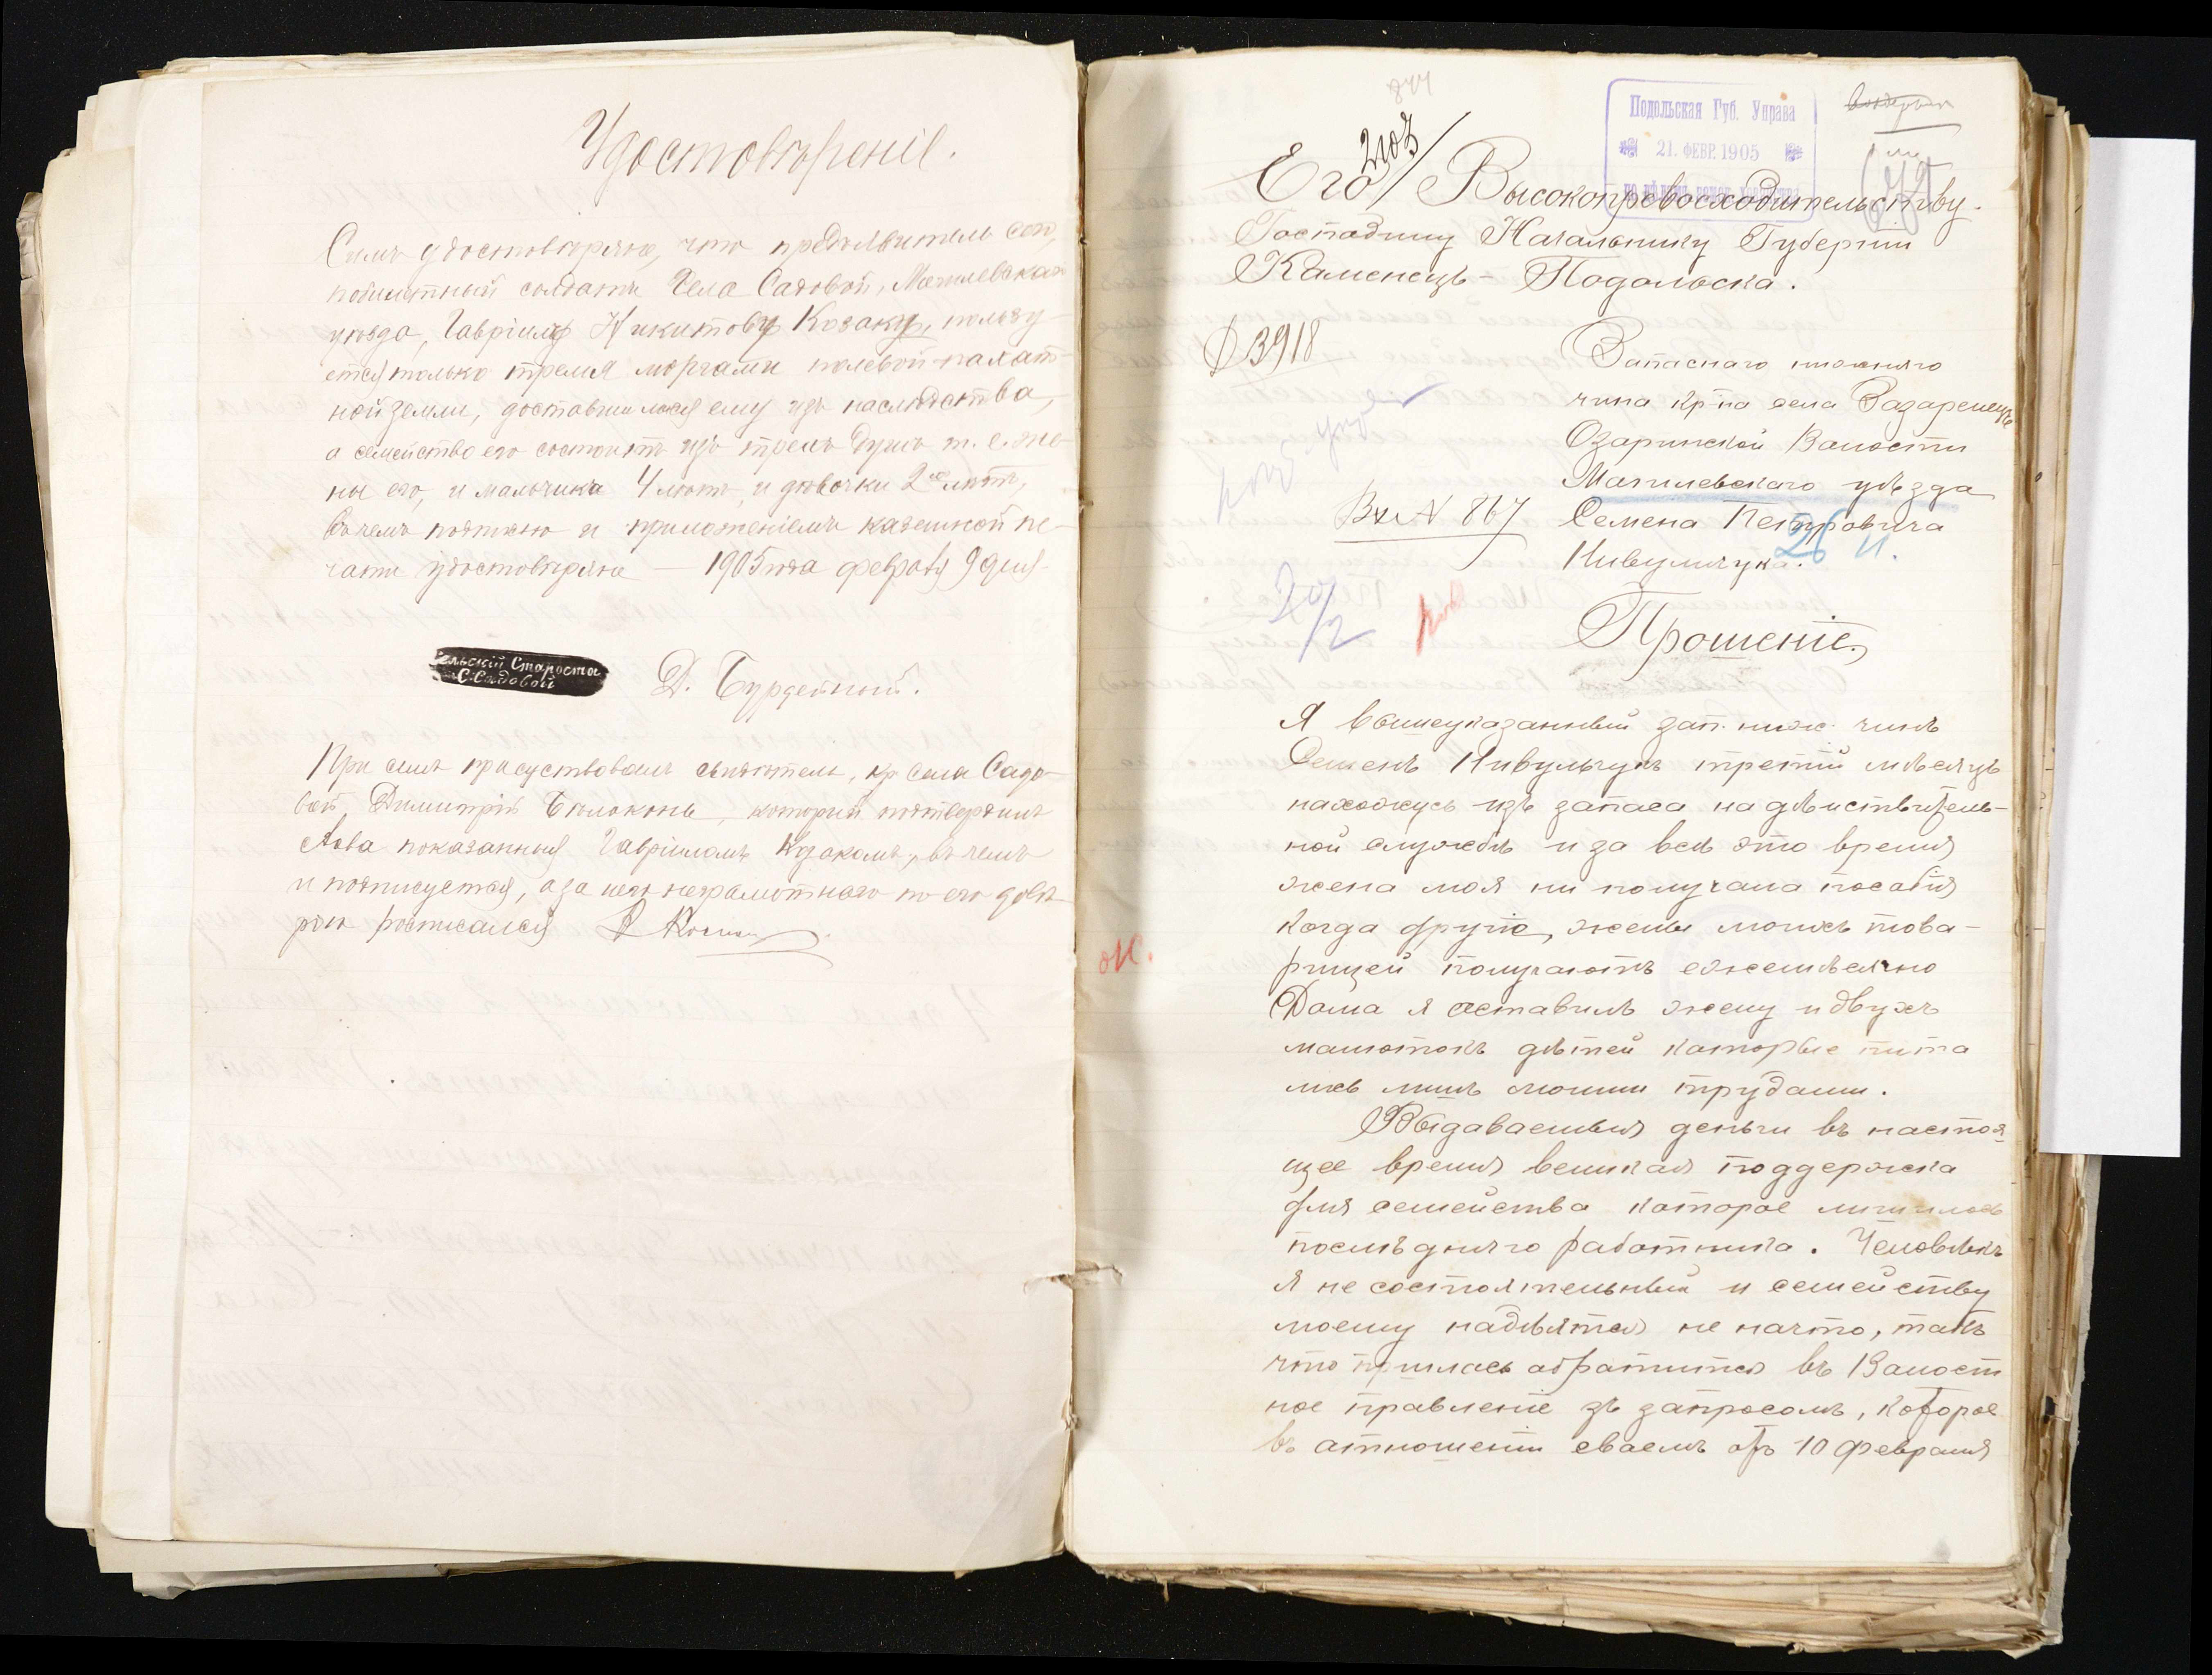 Удостовѣреніе.
Симъ удостовѣряю, что предъявитель сего,
побилетный солдатъ села Садовой, Могилевскаго
уѣзда, Гавріилу Никитову Козаку, пользу-
ется только тремя моргами полевой пахат-
ной земли, доставшимися ему изъ наслѣдства,
а семейство его состоитъ изъ трехъ душъ т. е. же-
ны его, и мальчика 4 лѣтъ, и дѣвочки 2хъ лѣтъ,
въ чемъ подписью и приложеніемъ казенной пе-
чати удостовѣряю — 1905 года февраля 9 дня.
Сельскій Староста
С. Садовой
Д. Бурдейный.
При семъ присуствовалъ свидѣтель, кр. села Садо-
вой, Димитрій Бѣлоконь, который подтвердилъ
слова показанныя Гавріиломъ Козакомъ, въ чемъ
и подписуется, а за него неграмотнаго по его довѣ-
рію росписался
844
2103
Подольская Губ. Управа
21. ФЕВР. 1905
Его Высокопревосходительству.
Господину Начальнику Губерніи
Каменецъ-Подольска.
3918
Запаснаго нижняго
чина кр-на села
Озаринской Валости
Магилевскаго уѣзда
Вх N 867
Семена Петровича
26 и.
Нивульчука.
20/2
Прошеніе.
Я вышеуказанный зап. ниж. чинъ
Семенъ Нивульчукъ третій мѣсяцъ
нахожусь изъ запаса на дѣиствитель-
ной службѣ и за все это время
жена моя ни получала пособія
когда другіе, жены моихъ това-
рищей получаютъ ежемѣсячно
Дома я оставилъ жену и двухъ
малютокъ дѣтей каторые пита
лись лишъ моими трудами.
Выдаваемыя деньги въ настоя
щее время великая поддержка
для семейства каторое лишилось
послѣдняго работника. Человѣкъ
я не состоятельный и семейству
моему надѣятся не начто, такъ
что пришлась абратится въ Валост
ное правленіе зъ запросомъ, которое
въ атношеніи сваемъ отъ 10 февраля